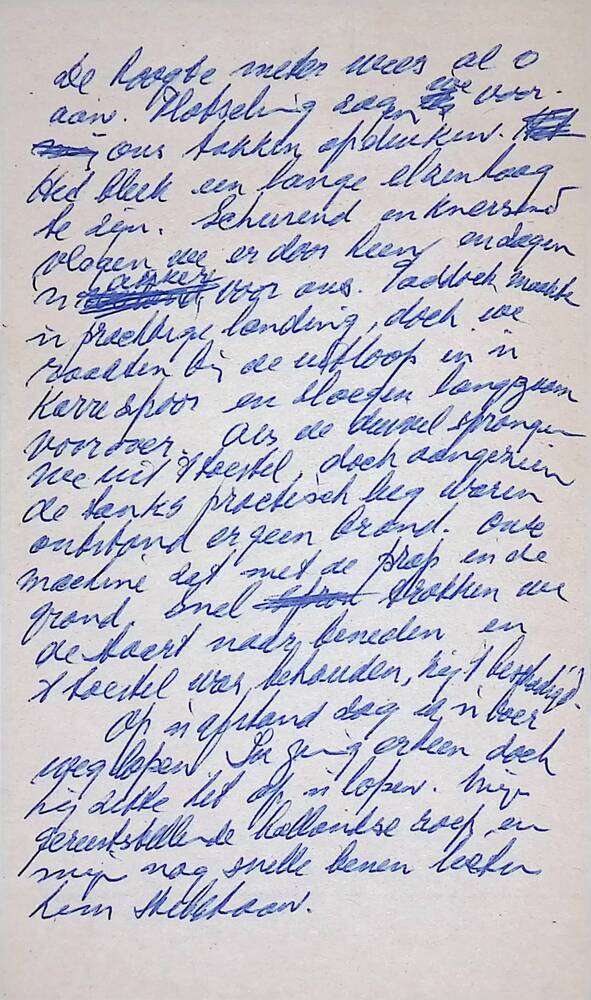 de hoogte meter wees al 0
aan. Plotseling zagen we voor
ons takken opduiken.
Het bleek een lange elzenhaag
te zijn. Schurend en knersend
vlogen we er door heen, en zagen
'n akker voor ons. Paddock maakte
'n prachtige landing, doch we
raakten bij de uitloop in 'n
karrespoor en sloegen langzaam
voorover. Als de duivel sprongen
we uit 't toestel, doch aangezien
de tanks practisch leeg waren
ontstond er geen brand. Onze
machine zat met de prop in de
grond. Snel trokken we
de staart naar beneden en
't toestel was behouden, zij 't beschadigd.
Op 'n afstand zag ik 'n boer
weglopen. Ik ging erheen doch
hij zette het op 'n lopen. Mijn
geruststellende hollandse roep en
mijn nog snelle benen lieten
hem stilstaan.